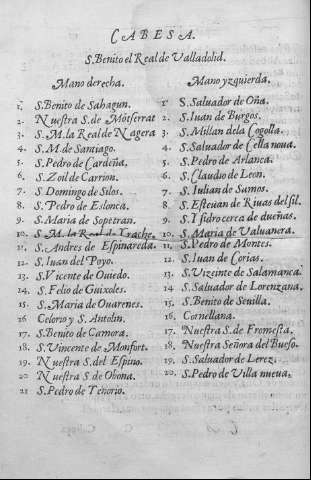 CABESA.
S.Benito el Real de Valladolid.
Mano derecha.
1. S.Benito de Sahagun.
2. Nuestra S.de Mõtserrat
3. S.M.la Real de Nagera
4. S.M.de Santiago.
5. S.Pedro de Cardeña.
6. S.Zoil de Carrion.
7. S.Domingo de Silos.
8. S.Pedro de Eslonca.
9. S.Maria de Sopetran.
10. S.M.la Real de Yrache.
11. S.Andres de Espinareda.
12. S.Iuan del Poyo.
13. S.Vicente de Ouiedo.
14. S.Felio de Guixoles.
15. S.Maria de Ouarenes.
16 Celorio y S.Antolin.
17. S.Benito de Camora.
18. S.Vincente de Monfort.
19. Nuestra S.del Espino.
20 Nuestra S de Obona.
21 S.Pedro de Tenorio.
Mano yzquierda.
1. S.Saluador de Oña.
2. S.Iuan de Burgos.
3. S.Millan dela Cogolla.
4. S.Saluador de Cella noua.
5. S.Pedro de Arlanca.
6. S.Claudio de Leon.
7. S.Iulian de Samos.
8. S.Esteuan de Riuas del sil.
9. S.Ysidro cerca de dueñas.
10. S.Maria de Valuanera.
11. S.Pedro de Montes.
12. S.Iuan de Corias.
13. S.Vizeinte de Salamanca.
14 S.Saluador de Lorenzana.
15. S.Benito de Seuilla.
16. Cornellana.
17. Nuestra S.de Fromesta.
18. Nuestra Señora del Bueso.
19. S.Saluador de Lerez.
20. S.Pedro de Villa nueua.